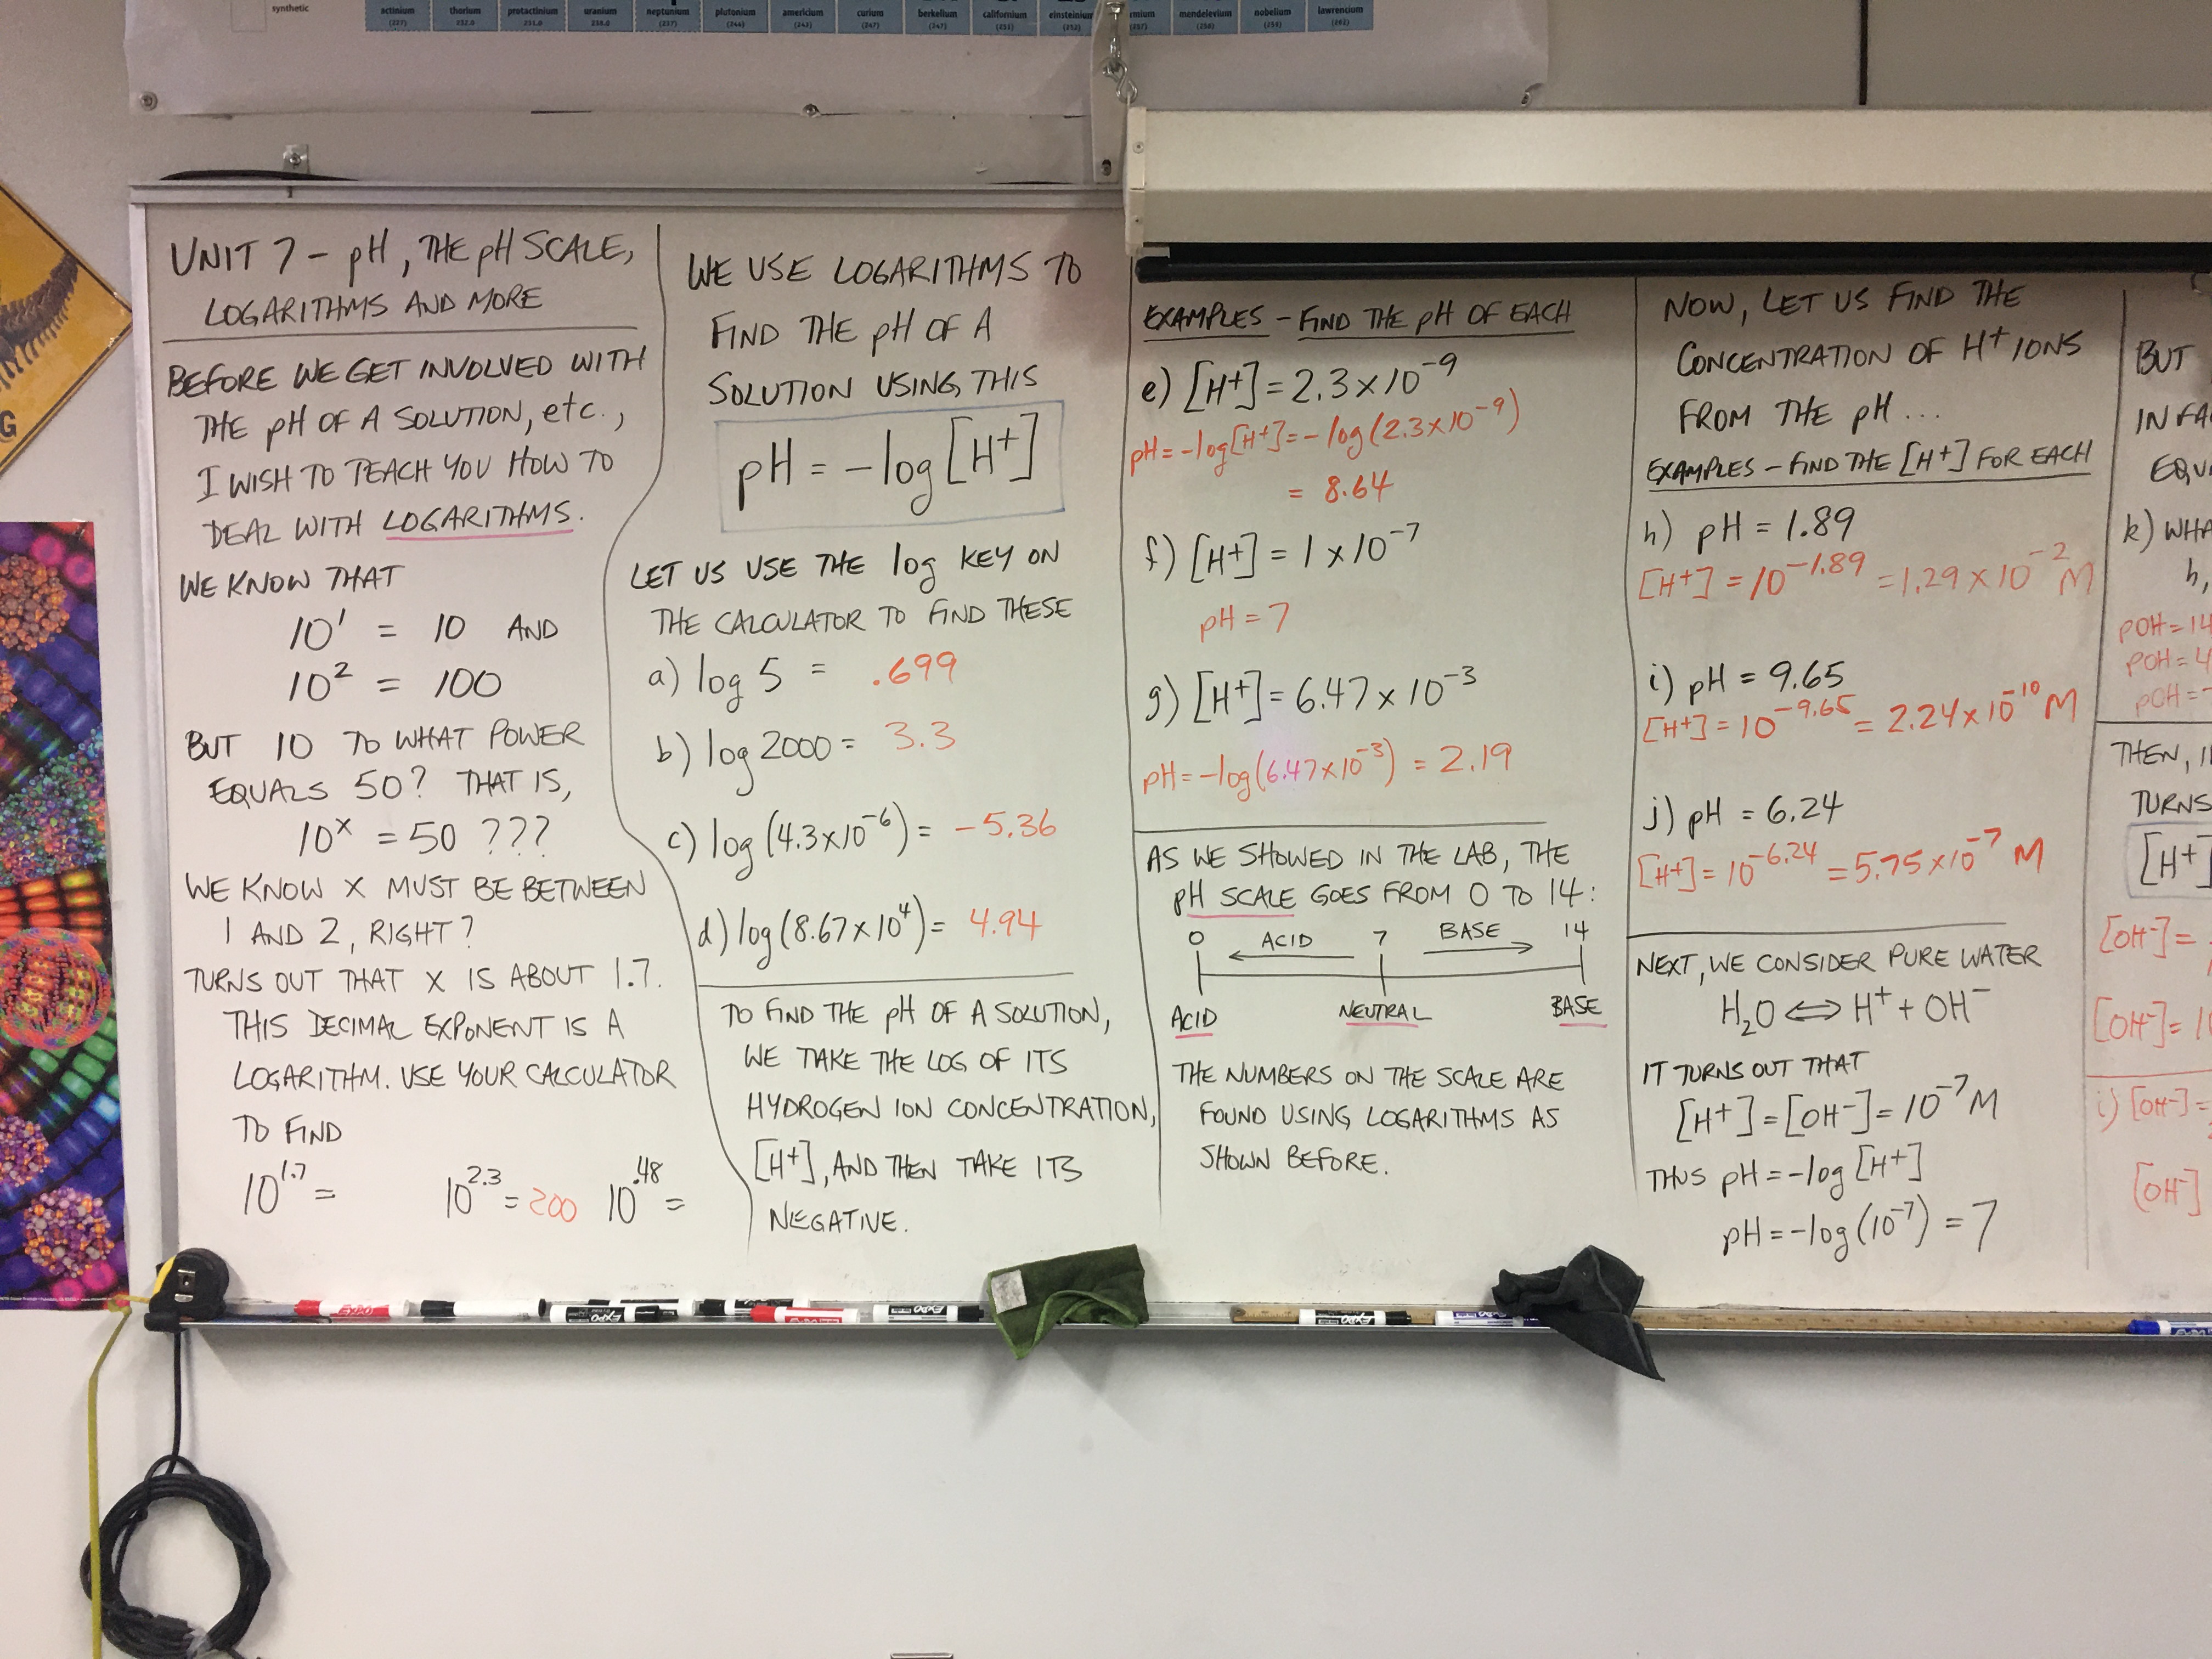 synthetic
actinium thorium protactinium uranium neptunium plutonium americium curium berkelium californium einsteinium mendelevium nobelium lawrencium
(227) 232.0 231.0 238.0 (237) (244) (243) (247) (247) (251) (252) (257) (258) (259) (262)
G
UNIT 7 - pH, THE pH SCALE,
LOGARITHMS AND MORE
BEFORE WE GET INVOLVED WITH
THE pH OF A SOLUTION, etc.,
I WISH TO TEACH YOU HOW TO
DEAL WITH LOGARITHMS.
WE KNOW THAT
10¹ = 10 AND
10² = 100
BUT 10 TO WHAT POWER
EQUALS 50? THAT IS,
10ˣ = 50 ???
WE KNOW X MUST BE BETWEEN
1 AND 2, RIGHT?
TURNS OUT THAT X IS ABOUT 1.7.
THIS DECIMAL EXPONENT IS A
LOGARITHM. USE YOUR CALCULATOR
TO FIND
10^1.7 = 10^2.3 = 200 10^.48 =
WE USE LOGARITHMS TO
FIND THE pH OF A
SOLUTION USING THIS
pH = -log[H⁺]
LET US USE THE log KEY ON
THE CALCULATOR TO FIND THESE
a) log 5 = .699
b) log 2000 = 3.3
c) log (4.3x10⁻⁶) = -5.36
d) log (8.67x10⁴) = 4.94
TO FIND THE pH OF A SOLUTION,
WE TAKE THE LOG OF ITS
HYDROGEN ION CONCENTRATION,
[H⁺], AND THEN TAKE ITS
NEGATIVE.
EXAMPLES - FIND THE pH OF EACH
e) [H⁺] = 2.3 x 10⁻⁹
pH = -log[H⁺] = -log(2.3x10⁻⁹)
= 8.64
f) [H⁺] = 1 x 10⁻⁷
pH = 7
g) [H⁺] = 6.47 x 10⁻³
pH = -log(6.47x10⁻³) = 2.19
AS WE SHOWED IN THE LAB, THE
pH SCALE GOES FROM 0 TO 14:
0 ACID 7 BASE 14
ACID NEUTRAL BASE
THE NUMBERS ON THE SCALE ARE
FOUND USING LOGARITHMS AS
SHOWN BEFORE.
NOW, LET US FIND THE
CONCENTRATION OF H⁺ IONS
FROM THE pH...
EXAMPLES - FIND THE [H⁺] FOR EACH
h) pH = 1.89
[H⁺] = 10^-1.89 = 1.29 x 10⁻² M
i) pH = 9.65
[H⁺] = 10^-9.65 = 2.24 x 10⁻¹⁰ M
j) pH = 6.24
[H⁺] = 10^-6.24 = 5.75 x 10⁻⁷ M
NEXT, WE CONSIDER PURE WATER
H₂O ⇔ H⁺ + OH⁻
IT TURNS OUT THAT
[H⁺] = [OH⁻] = 10⁻⁷ M
THUS pH = -log [H⁺]
pH = -log(10⁻⁷) = 7
BUT
IN FA
EQU
k) WHA
h,
pOH = 14
pOH = 4
pOH =
THEN, I
TURNS
[H⁺]
[OH⁻] =
[OH⁻] = 10
i) [OH⁻] =
[OH⁻]
EXPO
EXPO
EXPO
EXPO
EXPO
EXPO